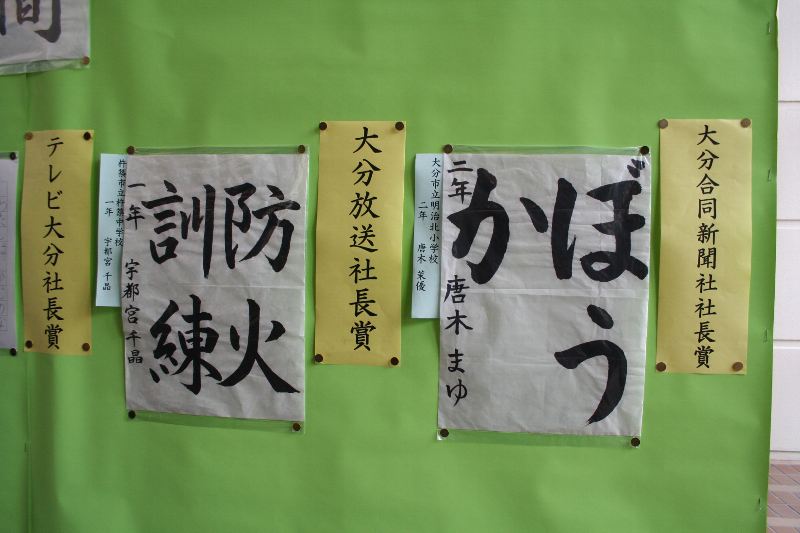 大分合同新聞社社長賞
ぼう
か
二年 唐木まゆ
大分市立明治北小学校
二年 唐木 茉優
大分放送社長賞
防火
訓練
一年 宇都宮千晶
杵築市立杵築中学校
一年 宇都宮 千晶
テレビ大分社長賞
間